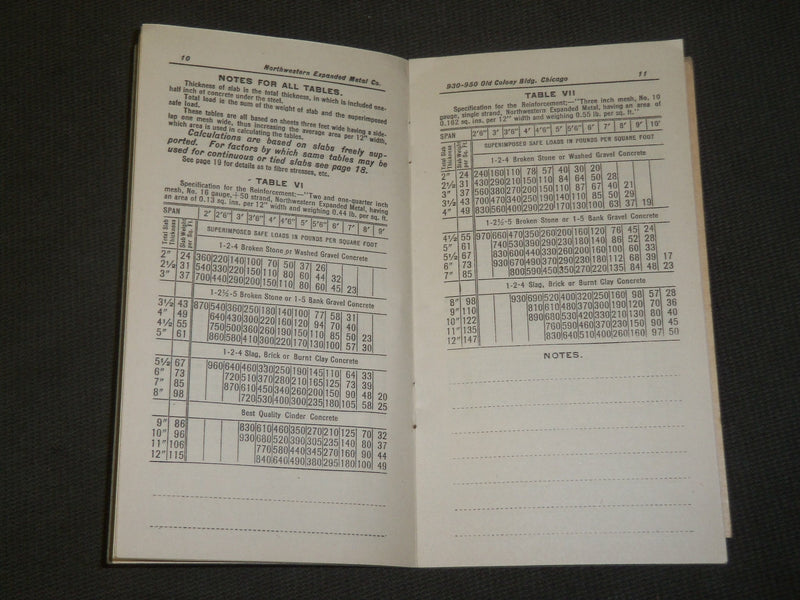 10
Northwestern Expanded Metal Co.
NOTES FOR ALL TABLES.
Thickness of slab is the total thickness, in which is included one-
half inch of concrete under the steel.
Total load is the sum of the weight of slab and the superimposed
safe load.
These tables are all based on sheets three feet wide having a side-
lap one mesh wide, thus increasing the average area per 12" width,
which area is used in calculating the tables.
Calculations are based on slabs freely sup-
ported. For factors by which same tables may be
used for continuous or tied slabs see page 18.
See page 19 for details as to fibre stresses, etc.
TABLE VI
Specification for the Reinforcement;—"Two and one-quarter inch
mesh, No. 16 gauge, +50 strand, Northwestern Expanded Metal, having
an area of 0.13 sq. ins. per 12" width and weighing 0.44 lb. per sq. ft.
SPAN 2' 2'6" 3' 3'6" 4' 4'6" 5' 5'6" 6' 7' 8' 9'
Total Slab Thickness Slab Weight per Sq. Ft. SUPERIMPOSED SAFE LOADS IN POUNDS PER SQUARE FOOT
1-2-4 Broken Stone or Washed Gravel Concrete
2" 24 360 220 140 100 70 50 37 26
2½" 31 540 330 220 150 110 80 60 44 32
3" 37 700 440 290 200 150 110 80 60 45 23
1-2½-5 Broken Stone or 1-5 Bank Gravel Concrete
3½" 43 870 540 360 250 180 140 100 77 58 31
4" 49 640 430 300 220 160 120 94 70 40
4½" 55 750 500 360 260 190 150 110 85 50 23
5" 61 860 580 410 300 220 170 130 100 57 30
1-2-4 Slag, Brick or Burnt Clay Concrete
5½" 67 960 640 460 330 250 190 145 110 64 33
6" 73 720 510 370 280 210 165 125 73 39
7" 85 870 610 450 340 260 200 150 90 48 20
8" 98 720 530 400 300 235 180 105 58 25
Best Quality Cinder Concrete
9" 86 830 610 460 350 270 210 125 70 32
10" 96 930 680 520 390 305 235 140 80 37
11" 106 770 580 440 345 270 160 90 44
12" 115 840 640 490 380 295 180 100 49
930-950 Old Colony Bldg, Chicago
11
TABLE VII
Specification for the Reinforcement;—"Three inch mesh, No. 10
gauge, single strand, Northwestern Expanded Metal, having an area of
0.162 sq. ins. per 12" width and weighing 0.55 lb. per sq. ft."
SPAN 2'6" 3' 3'6" 4' 4'6" 5' 5'6" 6' 7' 8' 9' 10'
Total Slab Thickness Slab Weight per Sq. Ft. SUPERIMPOSED SAFE LOADS IN POUNDS PER SQUARE FOOT
1-2-4 Broken Stone or Washed Gravel Concrete
2" 24 240 160 110 78 57 40 30 20
2½" 31 430 290 210 150 110 84 64 50 28
3" 37 560 380 270 200 150 110 87 67 40 21
3½" 43 700 470 340 250 190 140 110 85 50 29
4" 49 830 560 400 290 220 170 130 100 63 37 19
1-2½-5 Broken Stone or 1-5 Bank Gravel Concrete
4½" 55 970 660 470 350 260 200 160 120 76 45 24
5" 61 740 530 390 290 230 180 140 86 52 28
5½" 67 830 600 440 330 260 200 160 100 60 33
6" 73 930 670 490 370 290 230 180 112 68 39 17
7" 85 800 590 450 350 270 220 135 84 48 23
1-2-4 Slag, Brick or Burnt Clay Concrete
8" 98 930 690 520 400 320 250 160 98 57 28
9" 110 810 610 480 370 300 190 120 70 36
10" 122 890 680 530 420 330 210 130 80 40
11" 135 760 590 460 370 230 150 90 45
12" 147 830 640 510 400 260 160 97 50
NOTES.